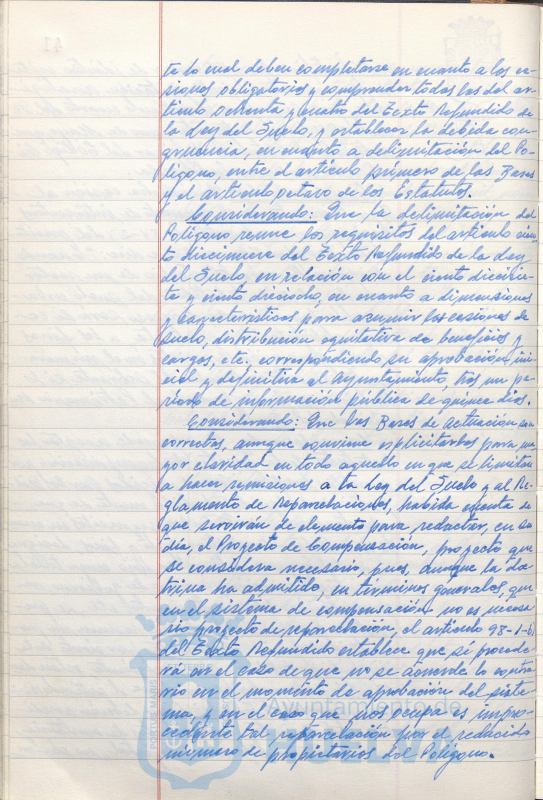 te lo cual deben completarse en cuanto a los ce-
siones, obligatorias y comprender todas las del ar-
tículo ochenta y cuatro del Texto Refundido de
la Ley del Suelo, y establecer la debida con-
gruencia, en cuanto a delimitación del Po-
lígono, entre el artículo primero de las Bases
y el artículo octavo de los Estatutos.
Considerando: Que la delimitación del
Polígono reune los requisitos del artículo cien-
to diecinueve del Texto Refundido de la Ley
del Suelo, en relación con el ciento diecisie-
te y ciento dieciocho, en cuanto a dimensiones
y características para asumir las cesiones de
suelo, distribución equitativa de beneficios y
cargas, etc. correspondiendo su aprobación ini-
cial y definitiva al Ayuntamiento, tras un pe-
ríodo de información pública de quince días.
Considerando: Que las Bases de actuación son
correctas, aunque conviene explicitarlas para ma-
yor claridad en todo aquello en que se limitan
a hacer remisiones a la Ley del Suelo y al Re-
glamento de Reparcelaciones, habida cuenta de
que servirán de elemento para redactar, en su
día, el Proyecto de Compensación, proyecto que
se considera necesario, pues, aunque la doc-
trina ha admitido, en términos generales, que
en el sistema de compensación no es necesa-
rio proyecto de reparcelación, el artículo 98-1-
del Texto Refundido establece que se procede-
rá en el caso de que no se acuerde lo contra-
rio en el momento de aprobación del siste-
ma, y en el caso que nos ocupa es impro-
cedente tal reparcelación por el reducido
número de propietarios del Polígono.
Ayuntamiento de